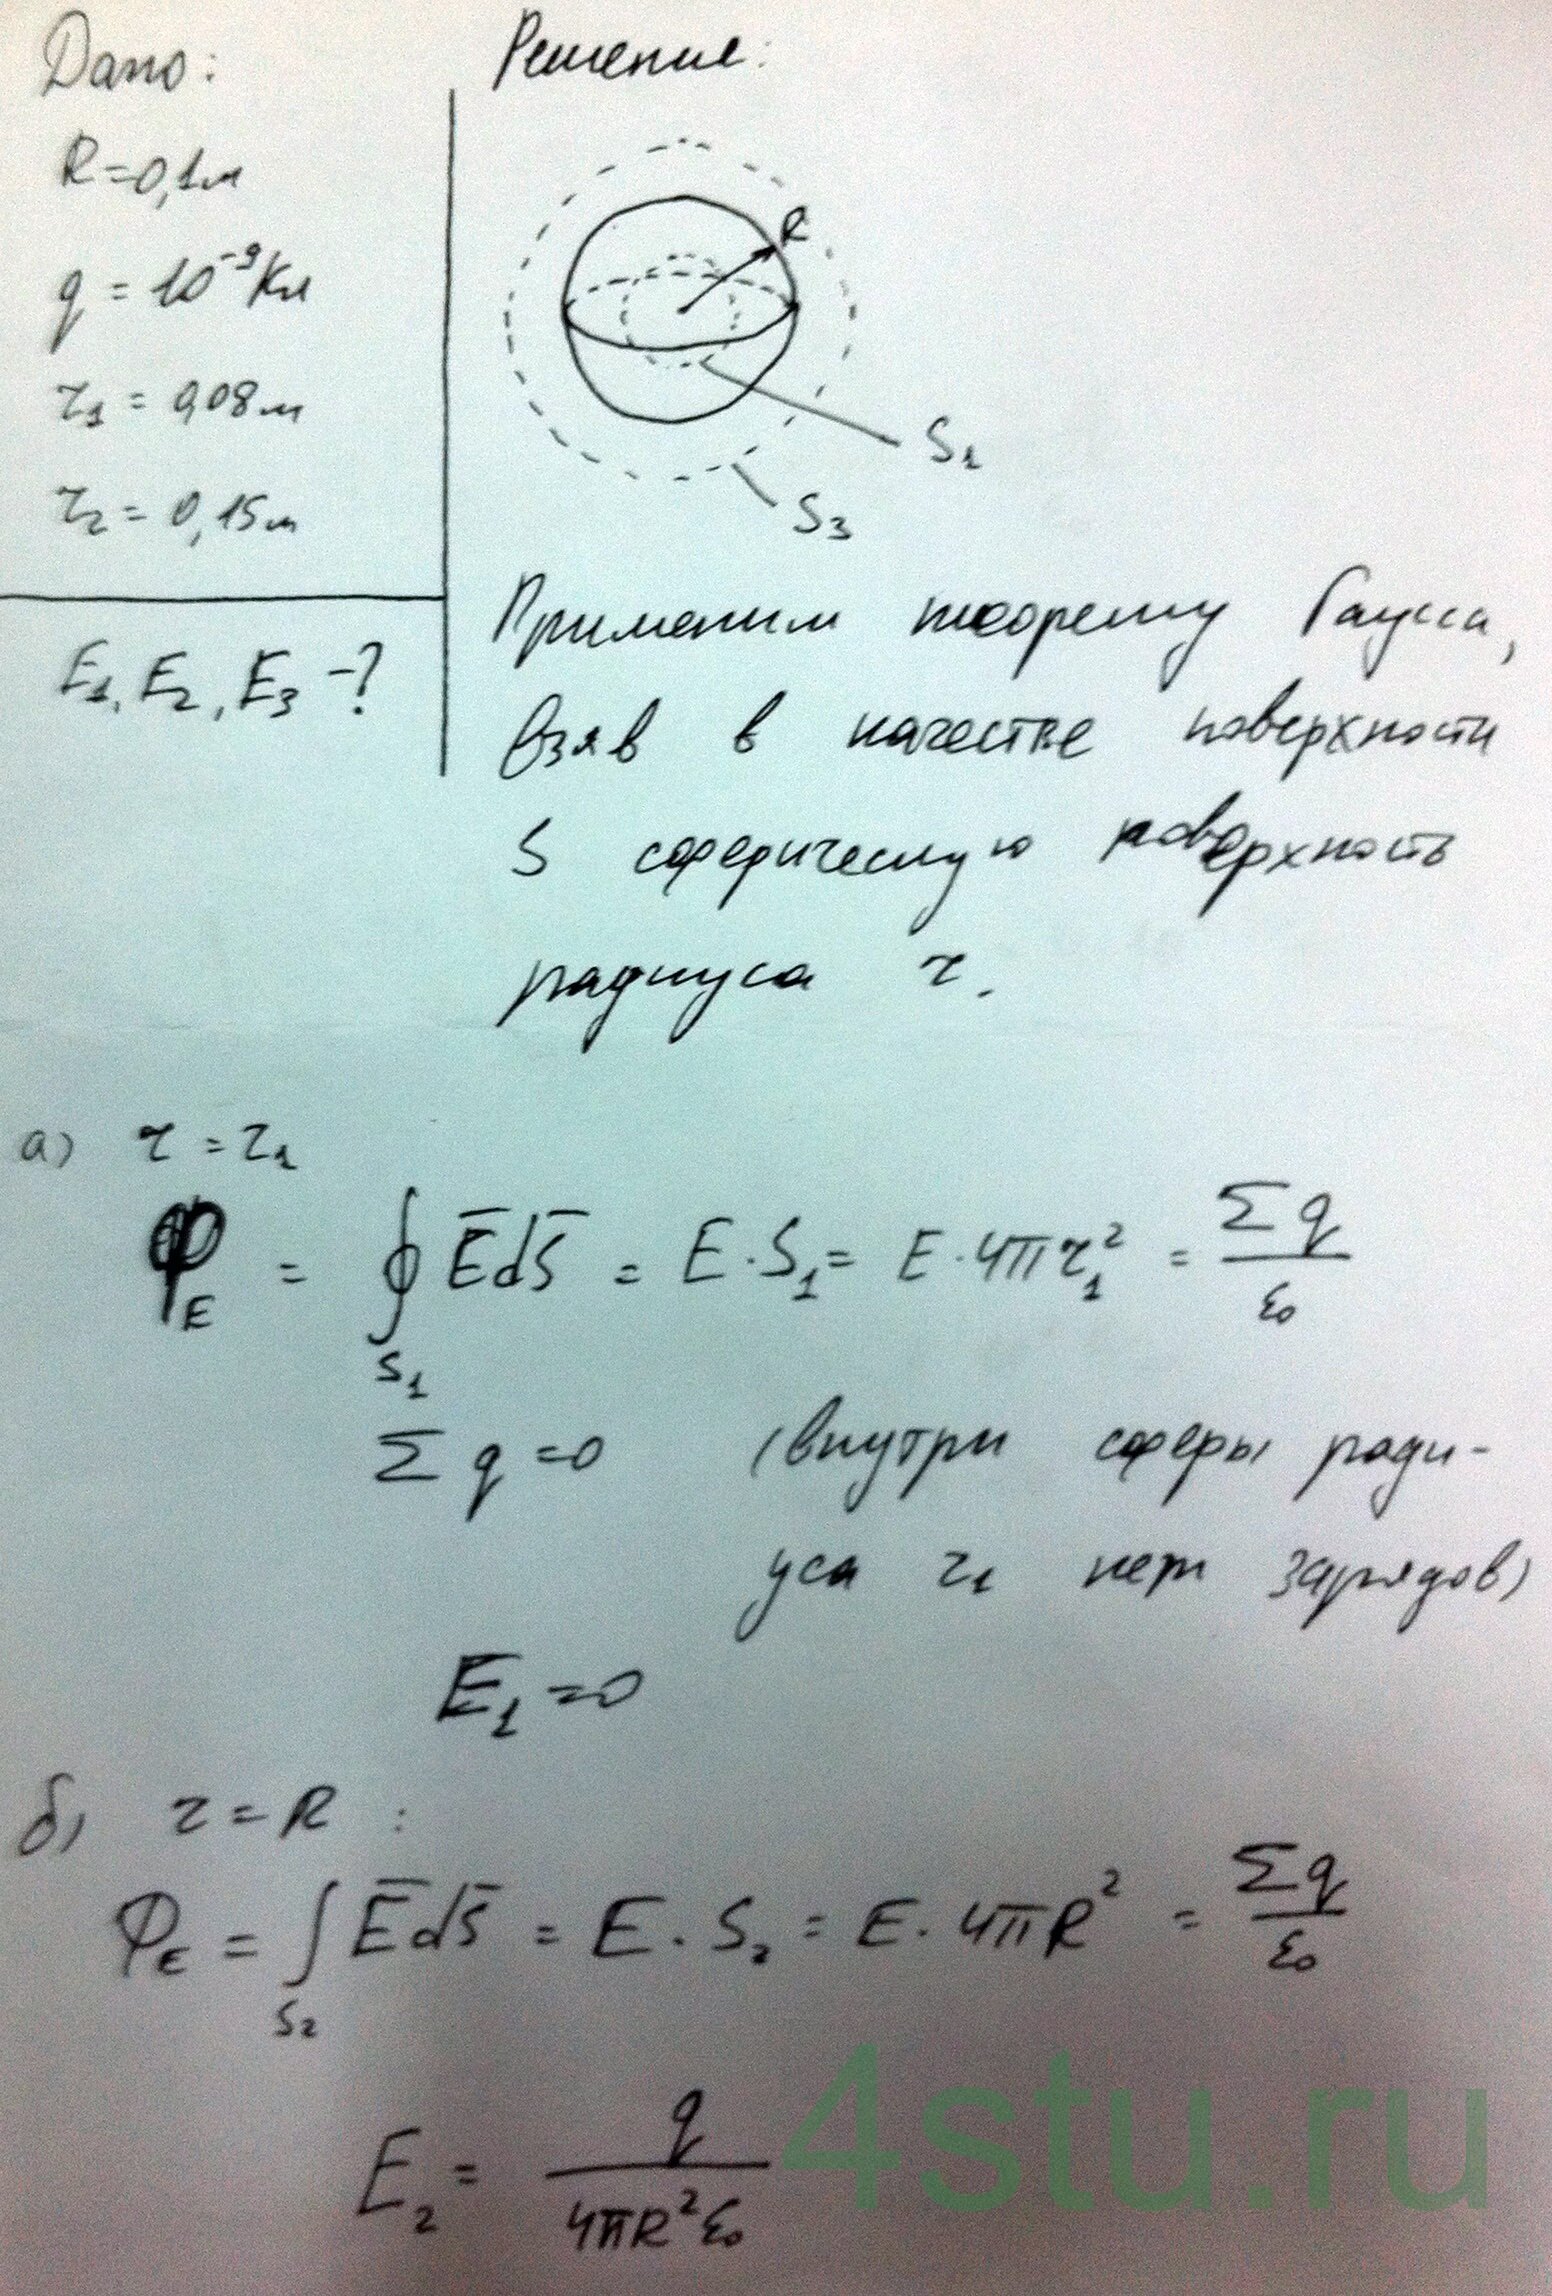 Дано:
R=0,1м
q = 10⁻⁹Кл
r₁ = 0,08м
r₂ = 0,15м
E₁, E₂, E₃ -?
Решение:
R
S₁
S₃
Применим теорему Гаусса,
взяв в качестве поверхности
S сферическую поверхность
радиуса r.
а) r = r₁
Φ_E = ∮_S₁ E̅dS̅ = E·S₁ = E·4πr₁² = Σq/ε₀
Σq=0 (внутри сферы ради-
уса r₁ нет зарядов)
E₁=0
б) r=R :
Φ_E = ∫_S₂ E̅dS̅ = E·S₂ = E·4πR² = Σq/ε₀
E₂ = q/4πR²ε₀
4stu.ru